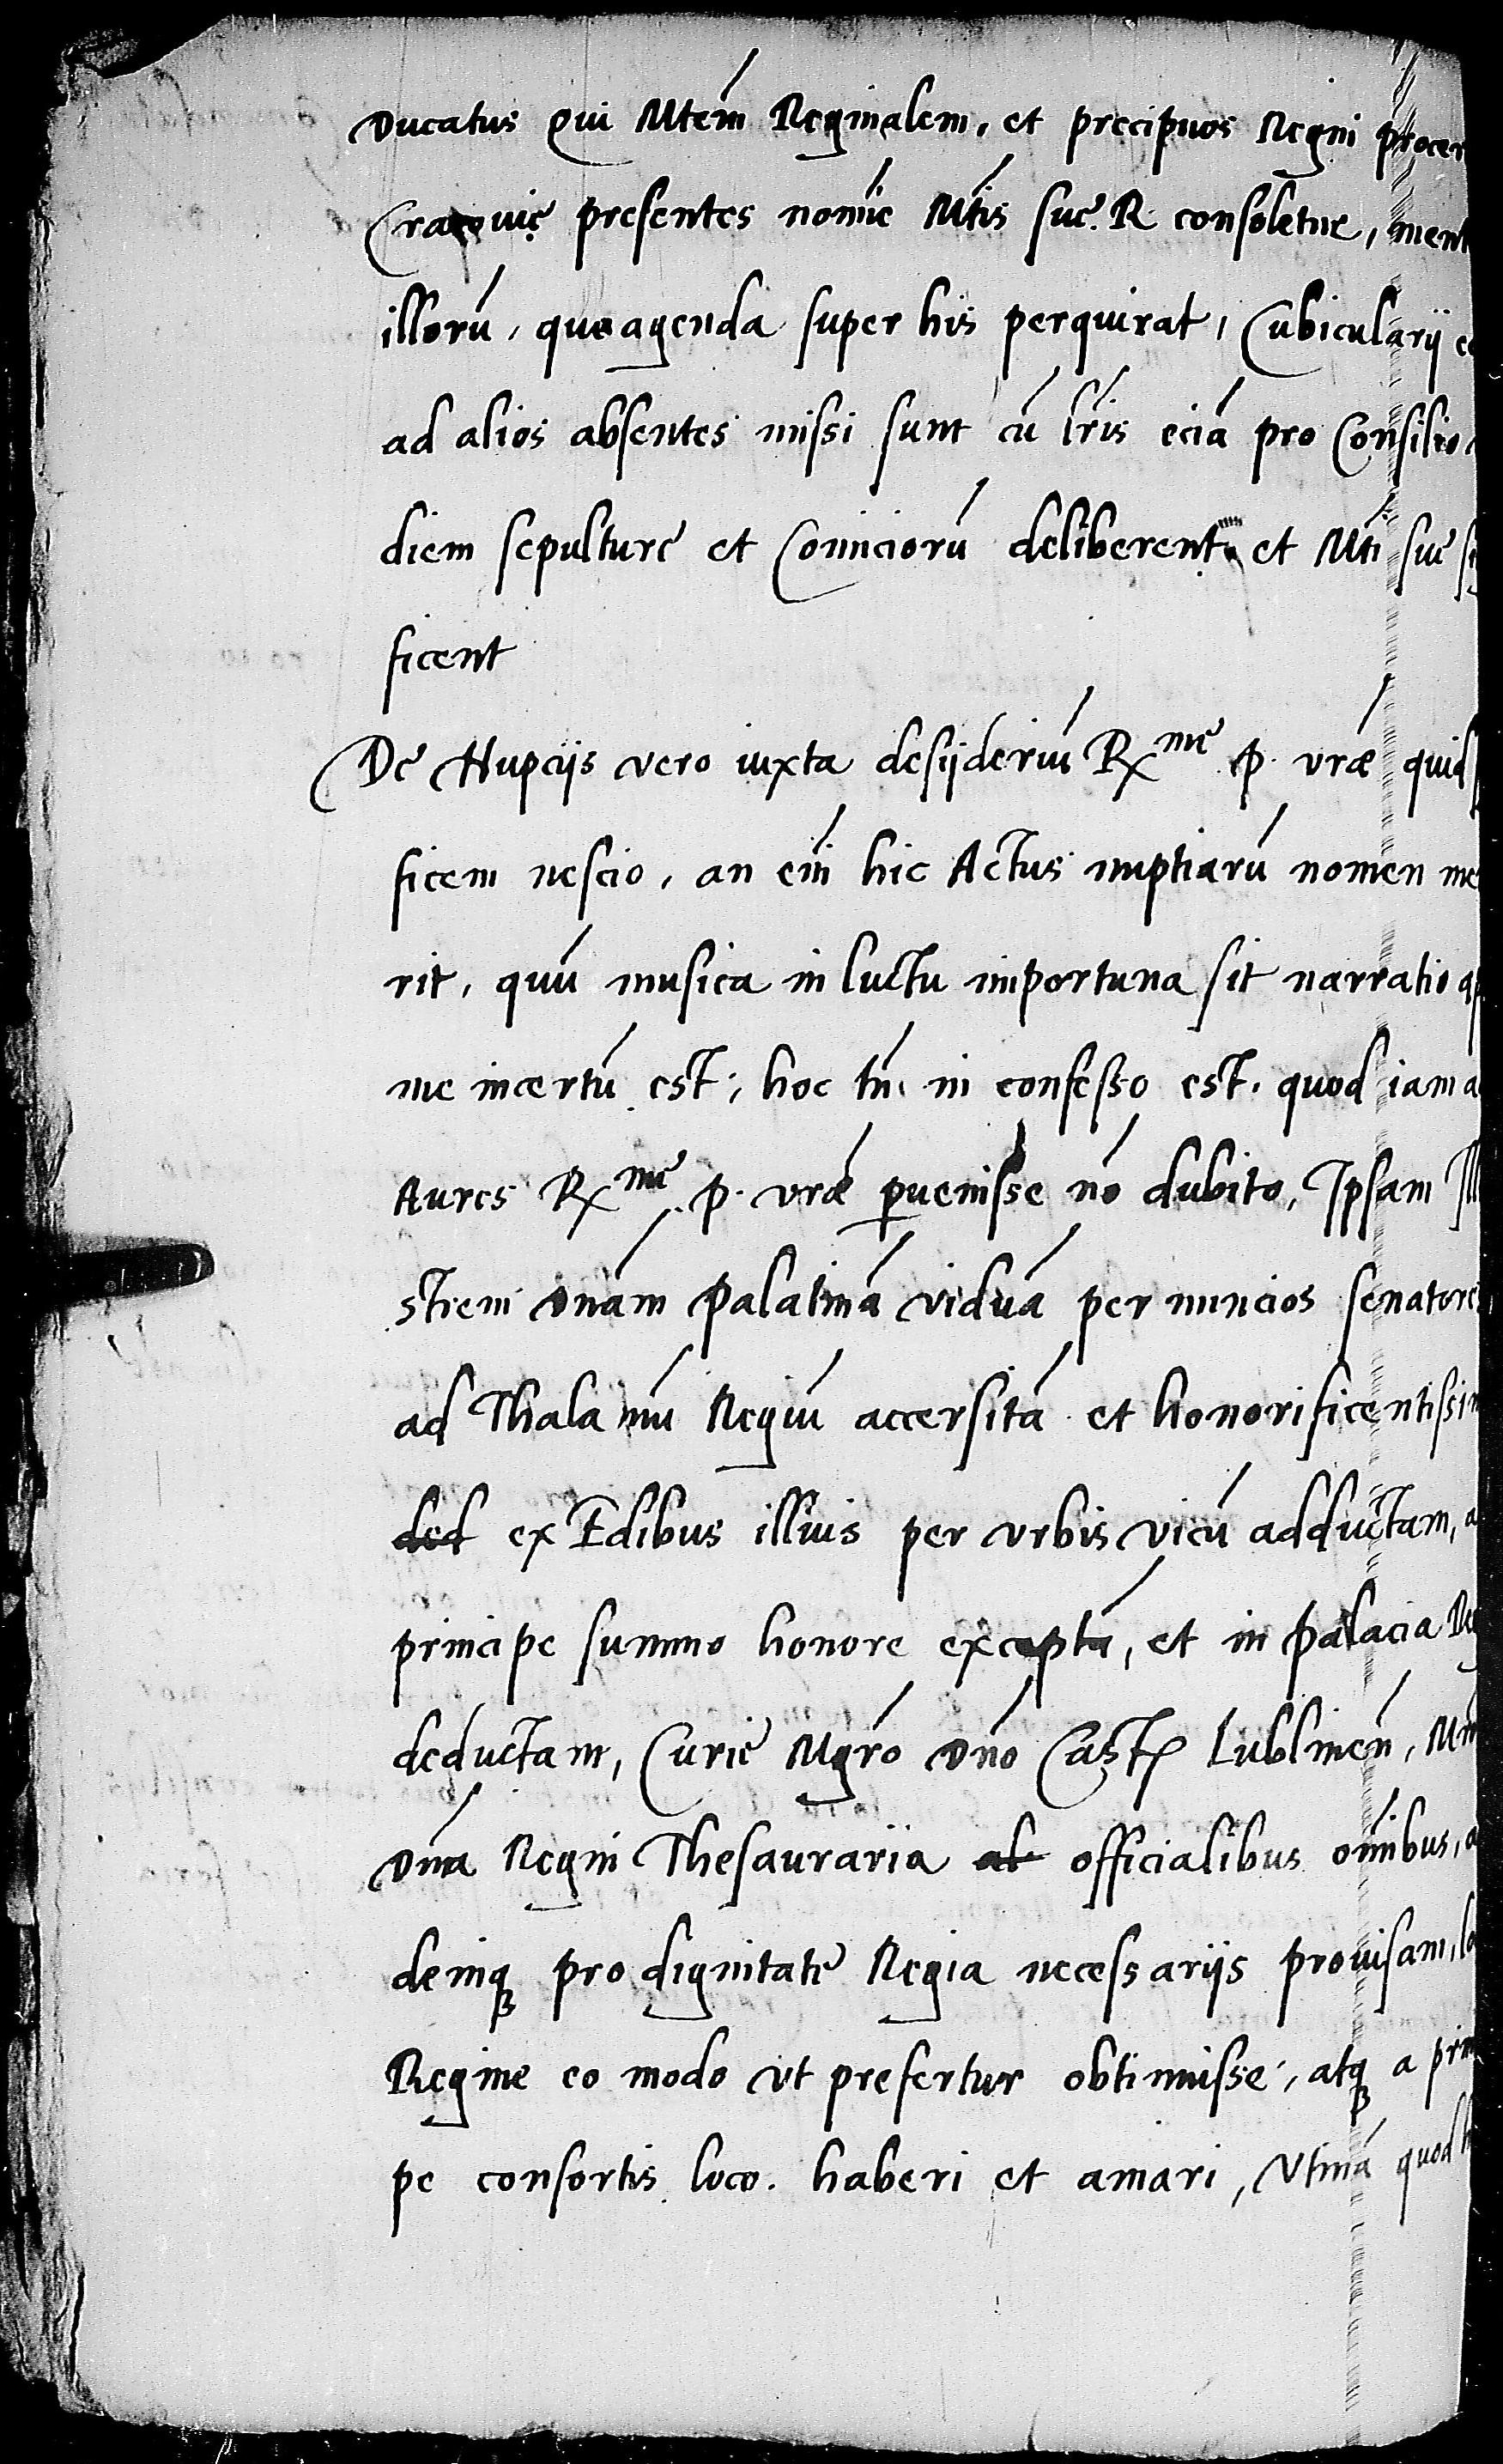 Ducatus qui Mtem Reginalem, et precipuos Regni procer
Cracovię presentes nomīe Mtis sue. R. consoletur, ment
illorū, que agenda super his perquirat, Cubicularij
ad alios absentes missi sunt cū lris eciā pro Consilio
diem sepulture et Comiciorū deliberent, et Mti sue si
ficent
De Nupcijs vero iuxta desijderiū Rxme p. vræ quid
ficem nescio, an eni hic Actus nuptiarū nomen me
rit, quū musica in luctu importuna sit narratio ap
me incertū est, hoc tn. in confesso est. quod iam a
Aures Rxme p. vræ puenisse nō dubito, Ipsam Illu
strem Dnam Palatinā viduā per nuncios senatores
ad Thalamū Regiū accersitā et honorificentissim
ded ex Edibus illius per vrbis vicū adductam, a
principe summo honore exceptā, et in palacia Reg
deductam, Curie Mgro Dno Cast Lublinen, Mn
Dna Regni Thesauraria ab officialibus omībus, a
deinq pro dignitate Regia necessarijs provisam, lo
Regine eo modo vt prefertur obtinuisse, atq a prin
pe consortis loco. haberi et amari, Vtinā quod